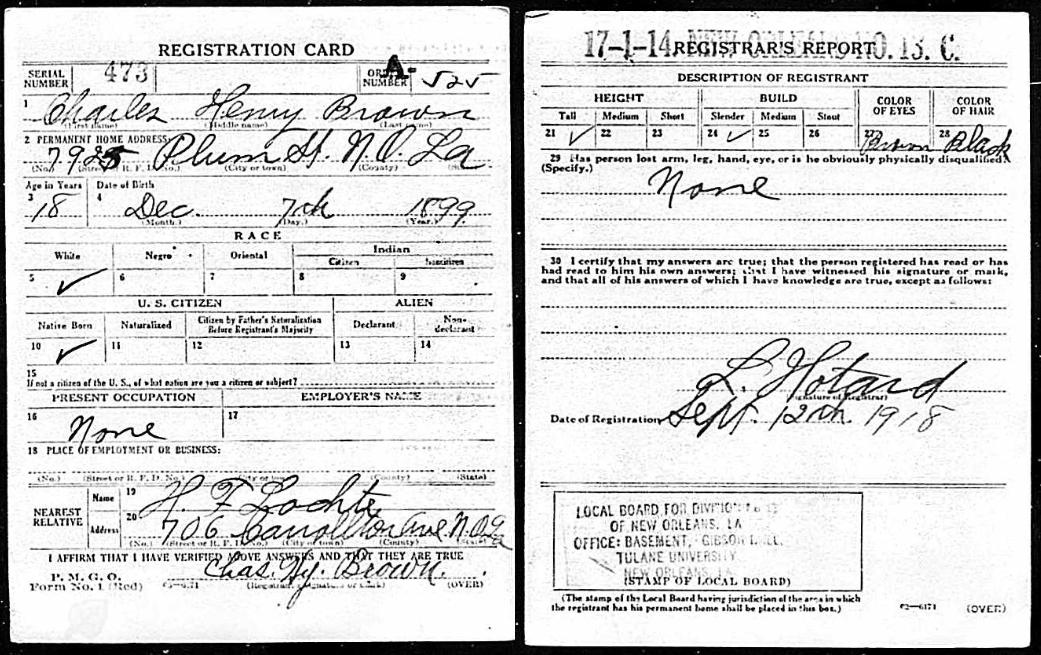 REGISTRATION CARD
SERIAL NUMBER 473 ORDER NUMBER A- 525
1 Charles Henry Brown
(First name) (Middle name) (Last name)
2 PERMANENT HOME ADDRESS:
7925 Plum St. N.O. La
(No.) (Street or R. F. D. No.) (City or town) (County) (State)
Age in Years Date of Birth
3 18 4 Dec. 7th 1899
(Month.) (Day.) (Year.)
RACE
White Negro Oriental Indian
Citizen Noncitizen
5 ✓ 6 7 8 9
U. S. CITIZEN ALIEN
Native Born Naturalized Citizen by Father's Naturalization Before Registrant's Majority Declarant Non-declarant
10 ✓ 11 12 13 14
15
If not a citizen of the U. S., of what nation are you a citizen or subject?
PRESENT OCCUPATION EMPLOYER'S NAME
16 None 17
18 PLACE OF EMPLOYMENT OR BUSINESS:
(No.) (Street or R. F. D. No.) (City or town) (County) (State)
NEAREST RELATIVE Name 19 H. F. Lochte
Address 20 706 Carrollton Ave N.O. La
(No.) (Street or R. F. D. No.) (City or town) (County) (State)
I AFFIRM THAT I HAVE VERIFIED ABOVE ANSWERS AND THAT THEY ARE TRUE
P. M. G. O.
Form No. 1 (Red) c3—6171 Chas. Hy. Brown
(Registrant's signature or mark) (OVER)
17-1-14 NEW ORLEANS NO. 13. C.
REGISTRAR'S REPORT
DESCRIPTION OF REGISTRANT
HEIGHT BUILD COLOR OF EYES COLOR OF HAIR
Tall Medium Short Slender Medium Stout
21 ✓ 22 23 24 ✓ 25 26 27 Brown 28 Black
29 Has person lost arm, leg, hand, eye, or is he obviously physically disqualified?
(Specify.)
None
30 I certify that my answers are true; that the person registered has read or has
had read to him his own answers; that I have witnessed his signature or mark,
and that all of his answers of which I have knowledge are true, except as follows:
L. Hotard
(Signature of Registrar)
Date of Registration Sept. 12th 1918
LOCAL BOARD FOR DIVISION No 13
OF NEW ORLEANS, LA
OFFICE: BASEMENT, GIBSON HALL,
TULANE UNIVERSITY
NEW ORLEANS, LA.
(STAMP OF LOCAL BOARD)
(The stamp of the Local Board having jurisdiction of the area in which
the registrant has his permanent home shall be placed in this box.)
c3—6171 (OVER)